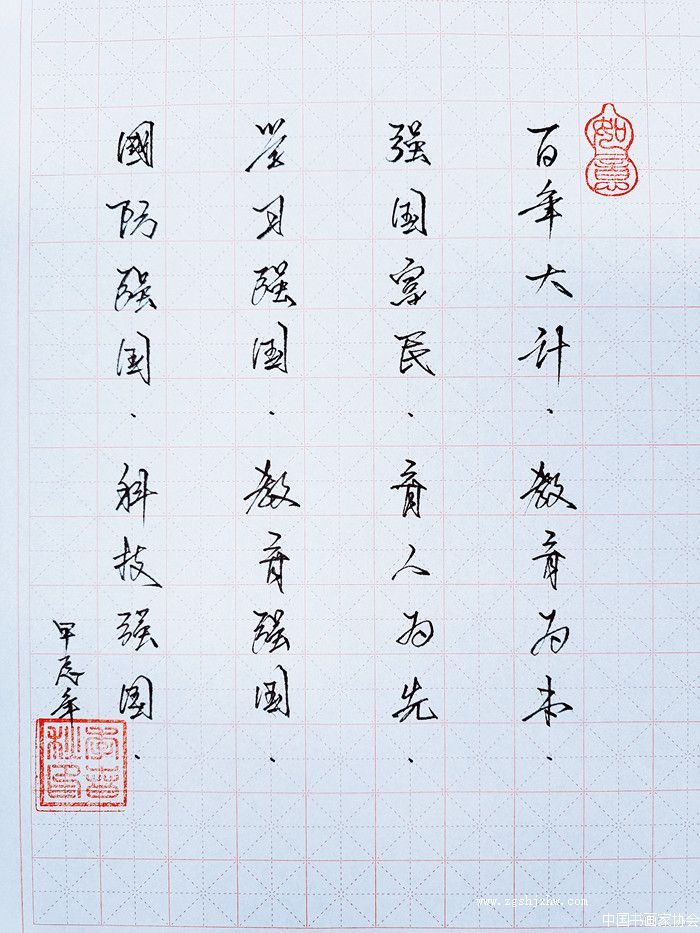 如意
百年大计．教育为本．
强国富民．育人为先．
学习强国．教育强国．
國防强国．科技强国．
甲辰年
www.zgshjzhw.com
中国书画家协会